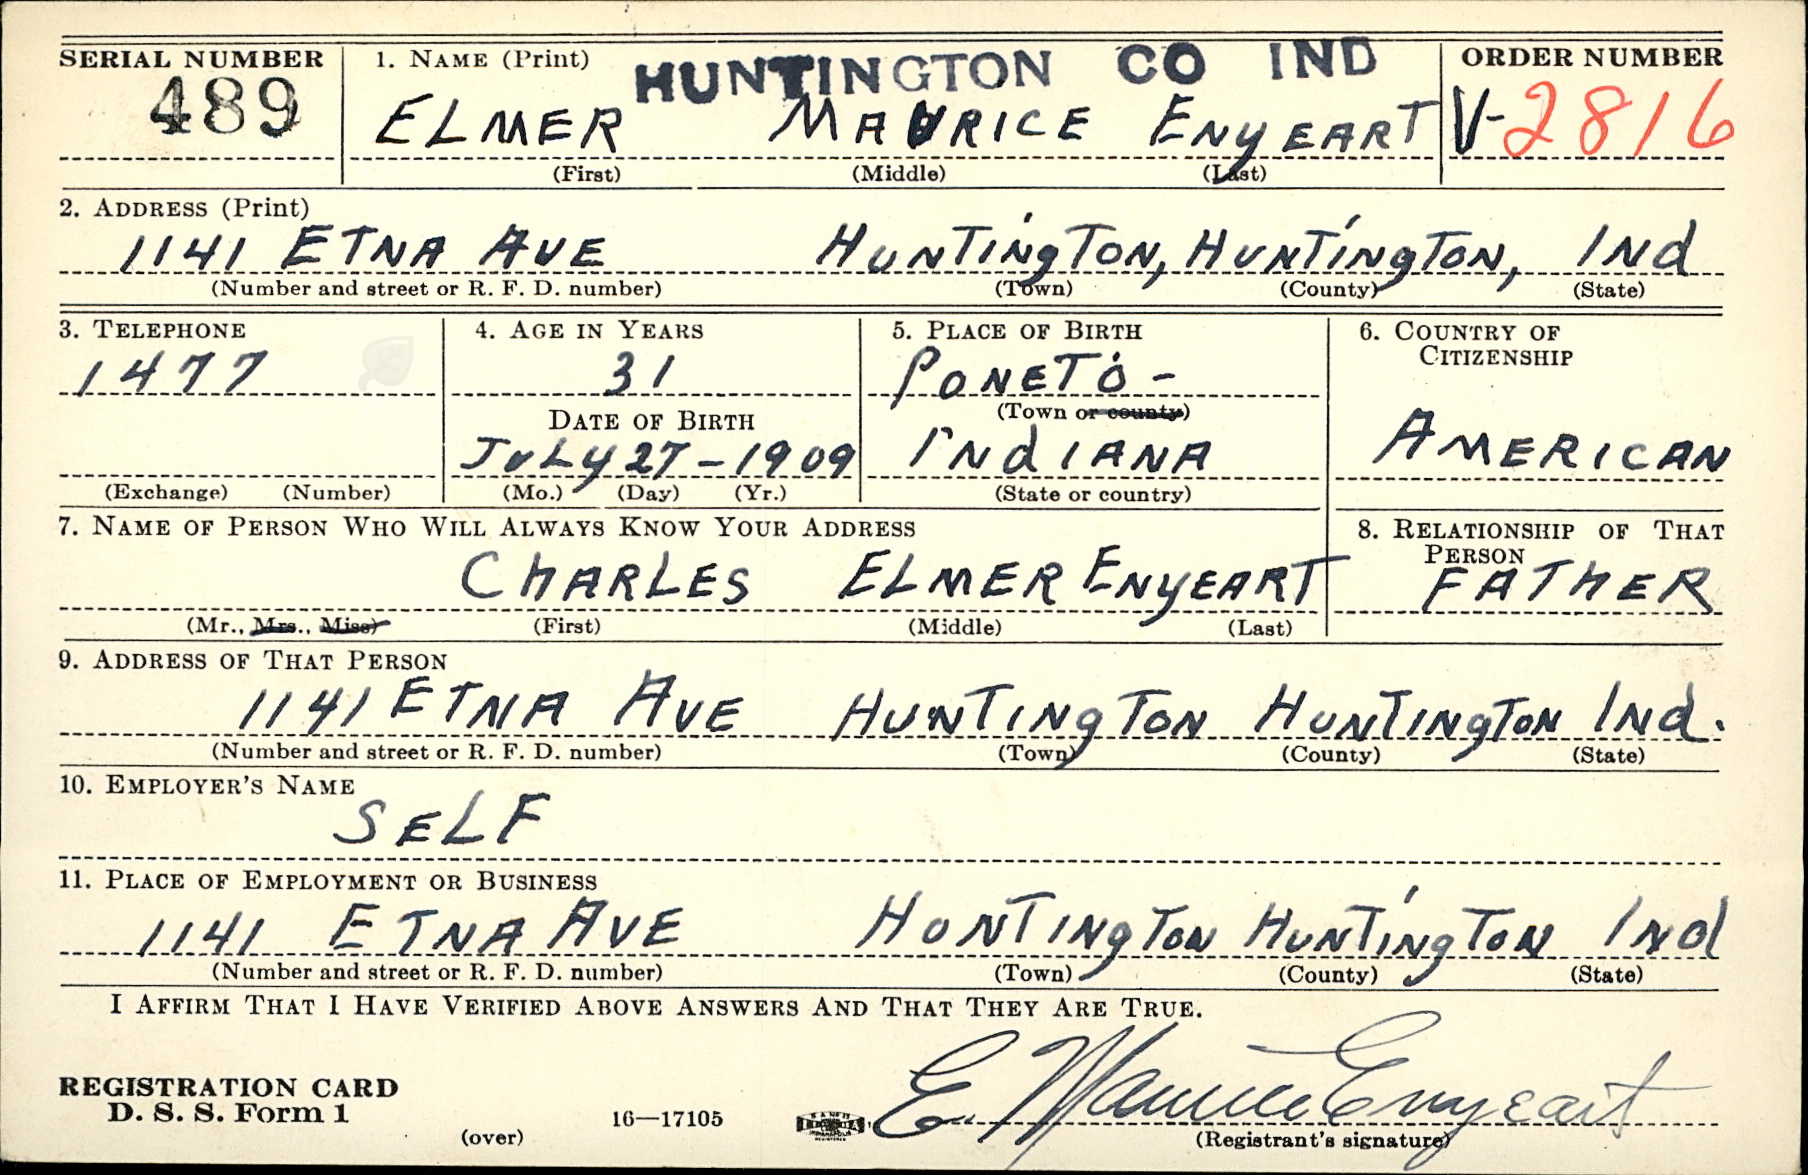 SERIAL NUMBER 1. NAME (Print) HUNTINGTON CO IND ORDER NUMBER
489 ELMER MAURICE ENYEART V-2816
(First) (Middle) (Last)
2. ADDRESS (Print)
1141 ETNA AVE HUNTINGTON, HUNTINGTON, IND
(Number and street or R. F. D. number) (Town) (County) (State)
3. TELEPHONE 4. AGE IN YEARS 5. PLACE OF BIRTH 6. COUNTRY OF CITIZENSHIP
1477 31 PONETO -
(Town or county)
DATE OF BIRTH
JULY 27-1909 INDIANA AMERICAN
(Exchange) (Number) (Mo.) (Day) (Yr.) (State or country)
7. NAME OF PERSON WHO WILL ALWAYS KNOW YOUR ADDRESS 8. RELATIONSHIP OF THAT PERSON
CHARLES ELMER ENYEART FATHER
(Mr., Mrs., Miss) (First) (Middle) (Last)
9. ADDRESS OF THAT PERSON
1141 ETNA AVE HUNTINGTON HUNTINGTON IND.
(Number and street or R. F. D. number) (Town) (County) (State)
10. EMPLOYER'S NAME
SELF
11. PLACE OF EMPLOYMENT OR BUSINESS
1141 ETNA AVE HUNTINGTON HUNTINGTON IND
(Number and street or R. F. D. number) (Town) (County) (State)
I AFFIRM THAT I HAVE VERIFIED ABOVE ANSWERS AND THAT THEY ARE TRUE.
REGISTRATION CARD
D. S. S. Form 1 16—17105 E. Maurice Enyeart
(over) (Registrant's signature)